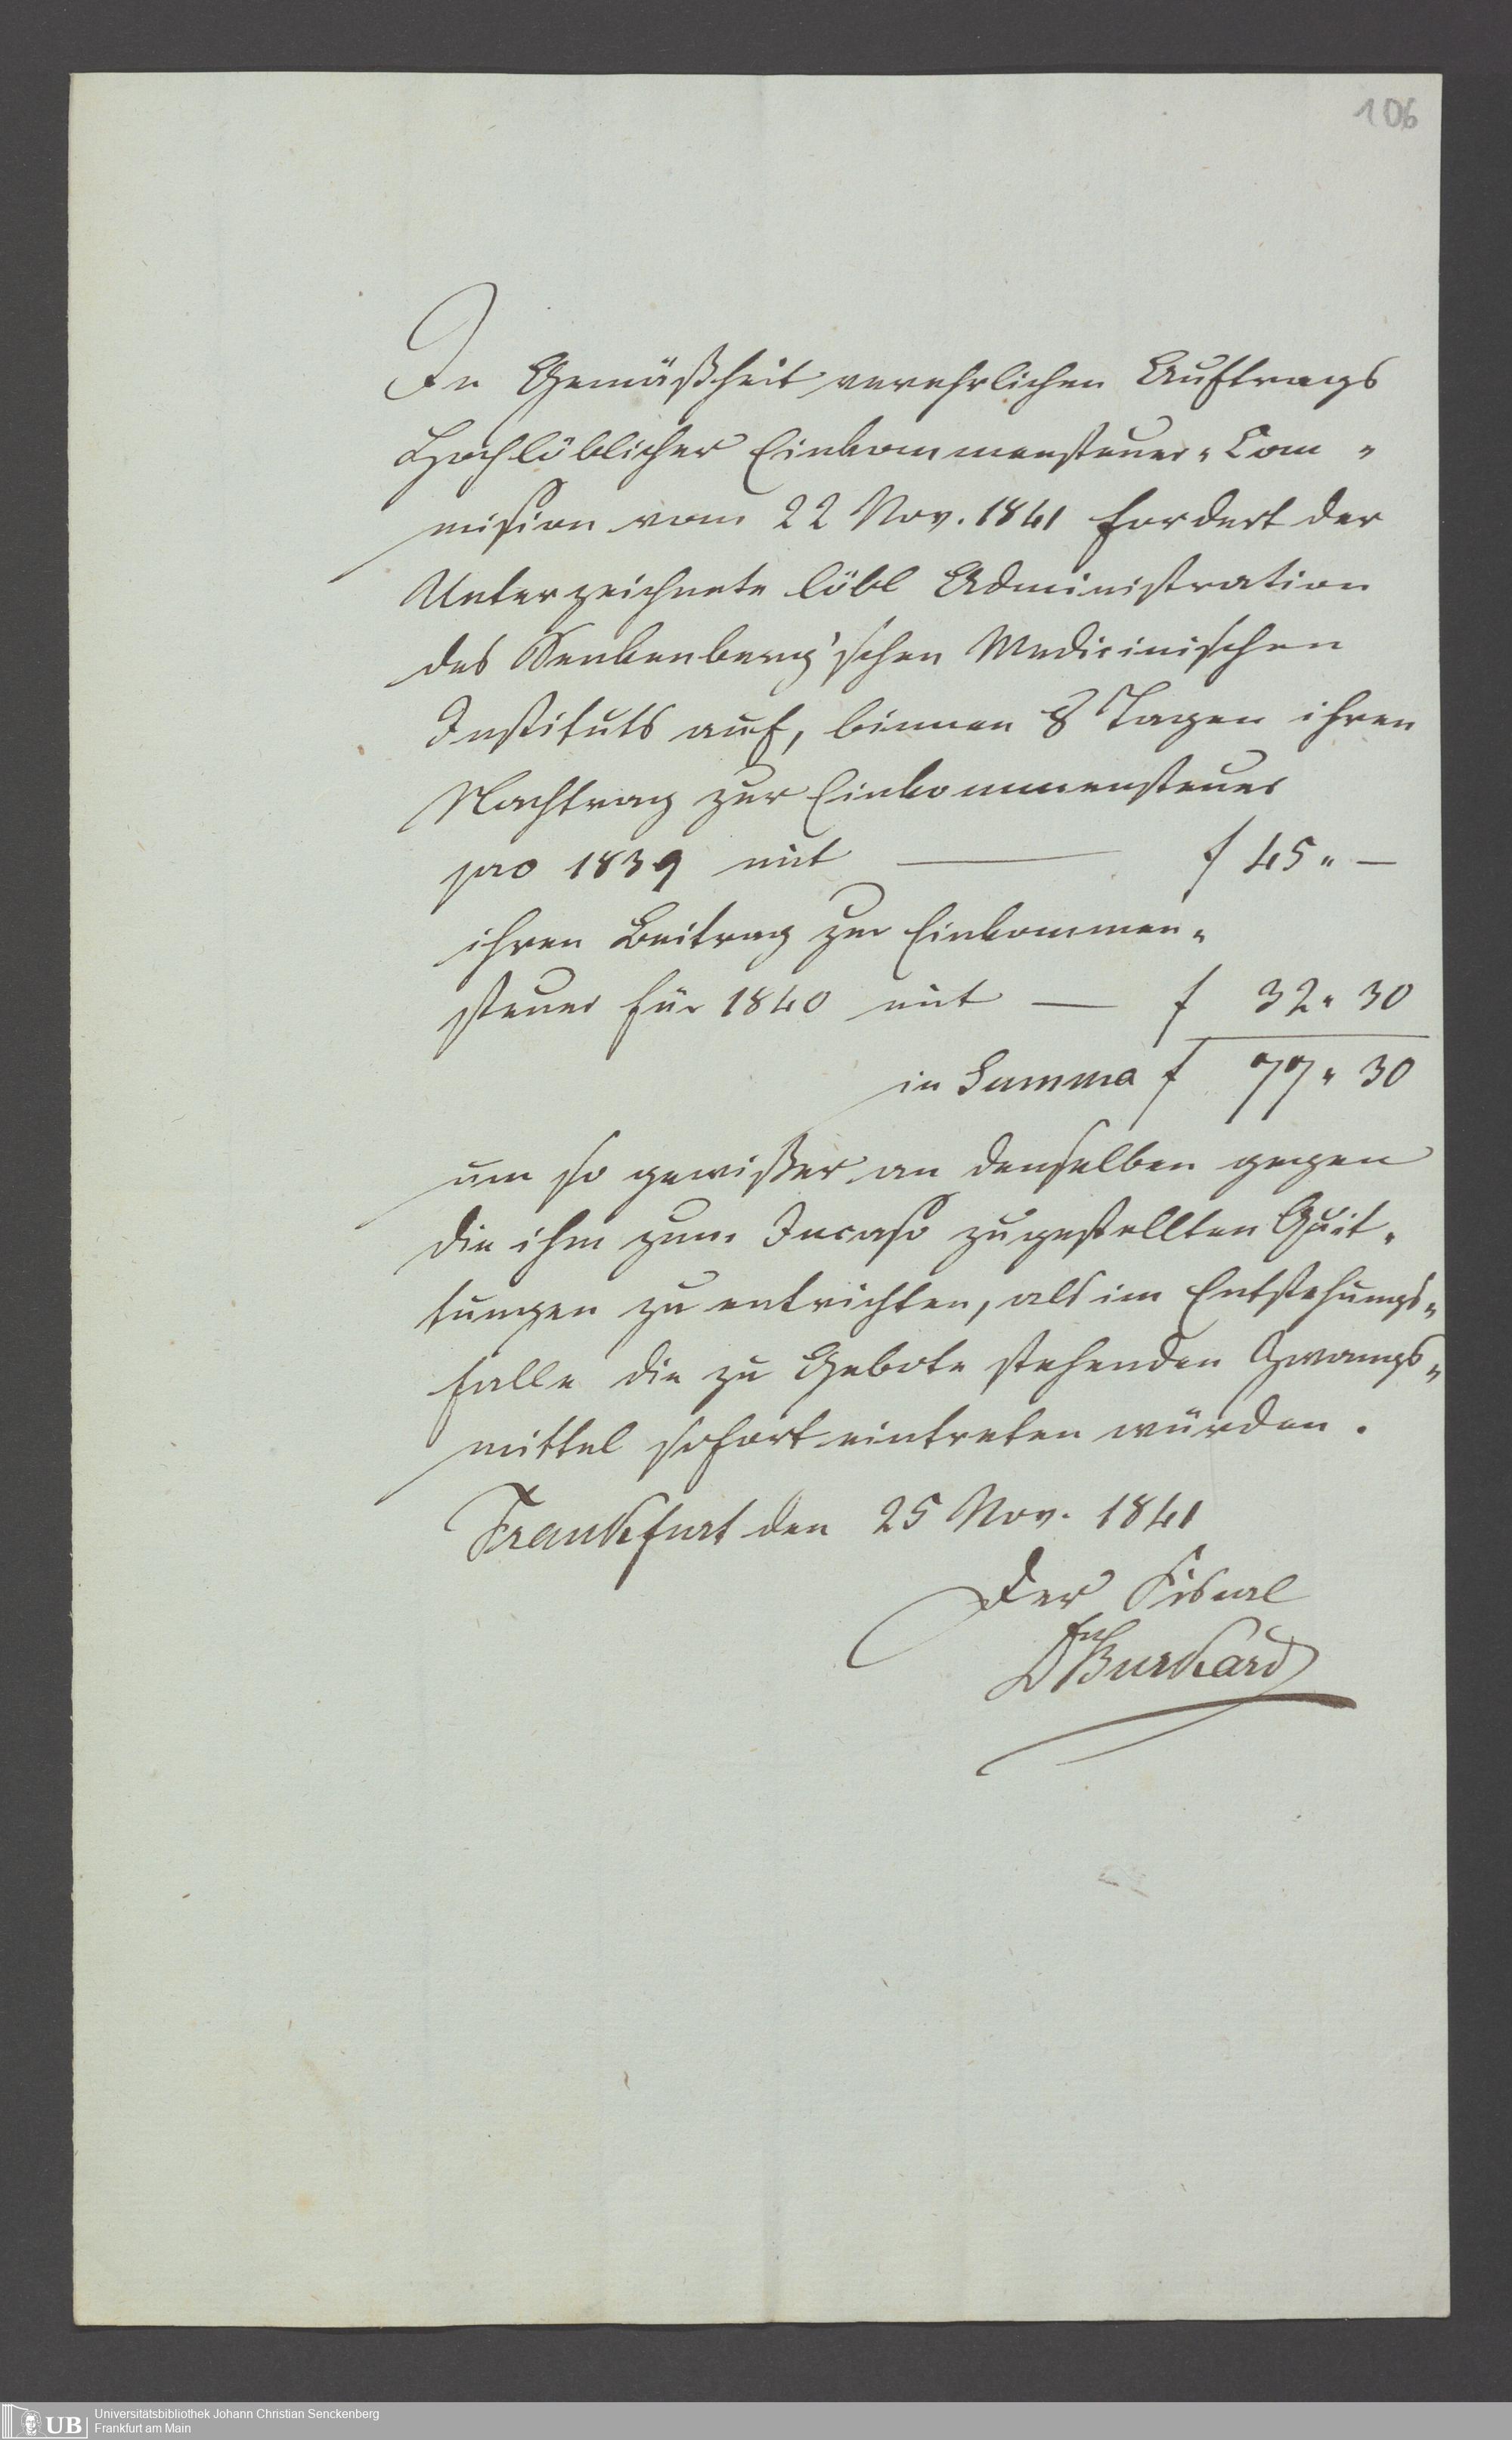 106
In Gemäßheit verehrlichen Auftrags
Hochlöblicher Einkommensteuer-Com-
mission vom 22 Nov. 1841 fordert der
Unterzeichnete löbl Administration
des Senkenberg'schen Medicinischen
Instituts auf, binnen 8 Tagen ihren
Nachtrag zur Einkommensteuer
pro 1839 mit — f 45 " —
ihren Beitrag zur Einkommen-
steuer für 1840 mit — f 32 " 30
in Summa f 77 " 30
um so gewißer an denselben gegen
die ihm zum Incasso zugestellten Quit-
tungen zu entrichten, als im Entstehungs-
falle die zu Gebote stehenden Zwangs-
mittel sofort eintreten würden.
Frankfurt den 25 Nov. 1841
Der Fiskal
Dr Burkard
UB Universitätsbibliothek Johann Christian Senckenberg
Frankfurt am Main